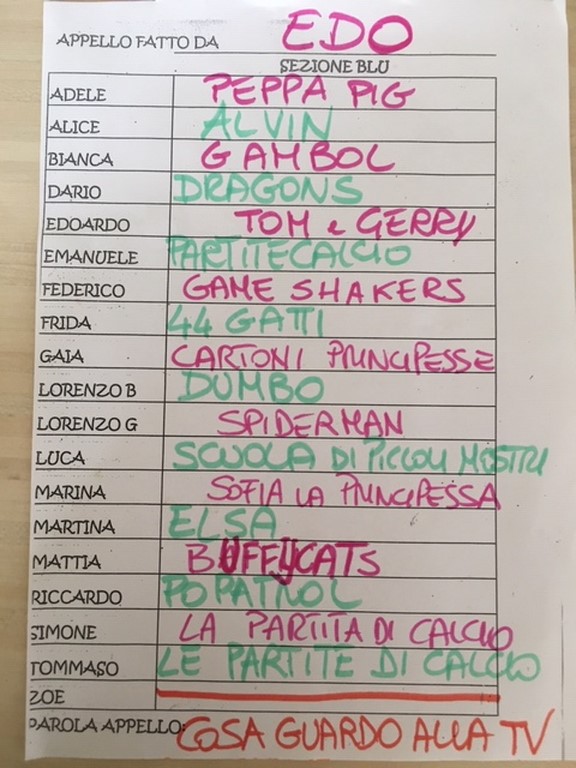 APPELLO FATTO DA EDO
SEZIONE BLU
ADELE PEPPA PIG
ALICE ALVIN
BIANCA GAMBOL
DARIO DRAGONS
EDOARDO TOM e GERRY
EMANUELE PARTITECALCIO
FEDERICO GAME SHAKERS
FRIDA 44 GATTI
GAIA CARTONI PRINCIPESSE
LORENZO B DUMBO
LORENZO G SPIDERMAN
LUCA SCUOLA DI PICCOLI MOSTRI
MARINA SOFIA LA PRINCIPESSA
MARTINA ELSA
MATTIA BUFFYCATS
RICCARDO PO PATROL
SIMONE LA PARTITA DI CALCIO
TOMMASO LE PARTITE DI CALCIO
ZOE
PAROLA APPELLO: COSA GUARDO ALLA TV